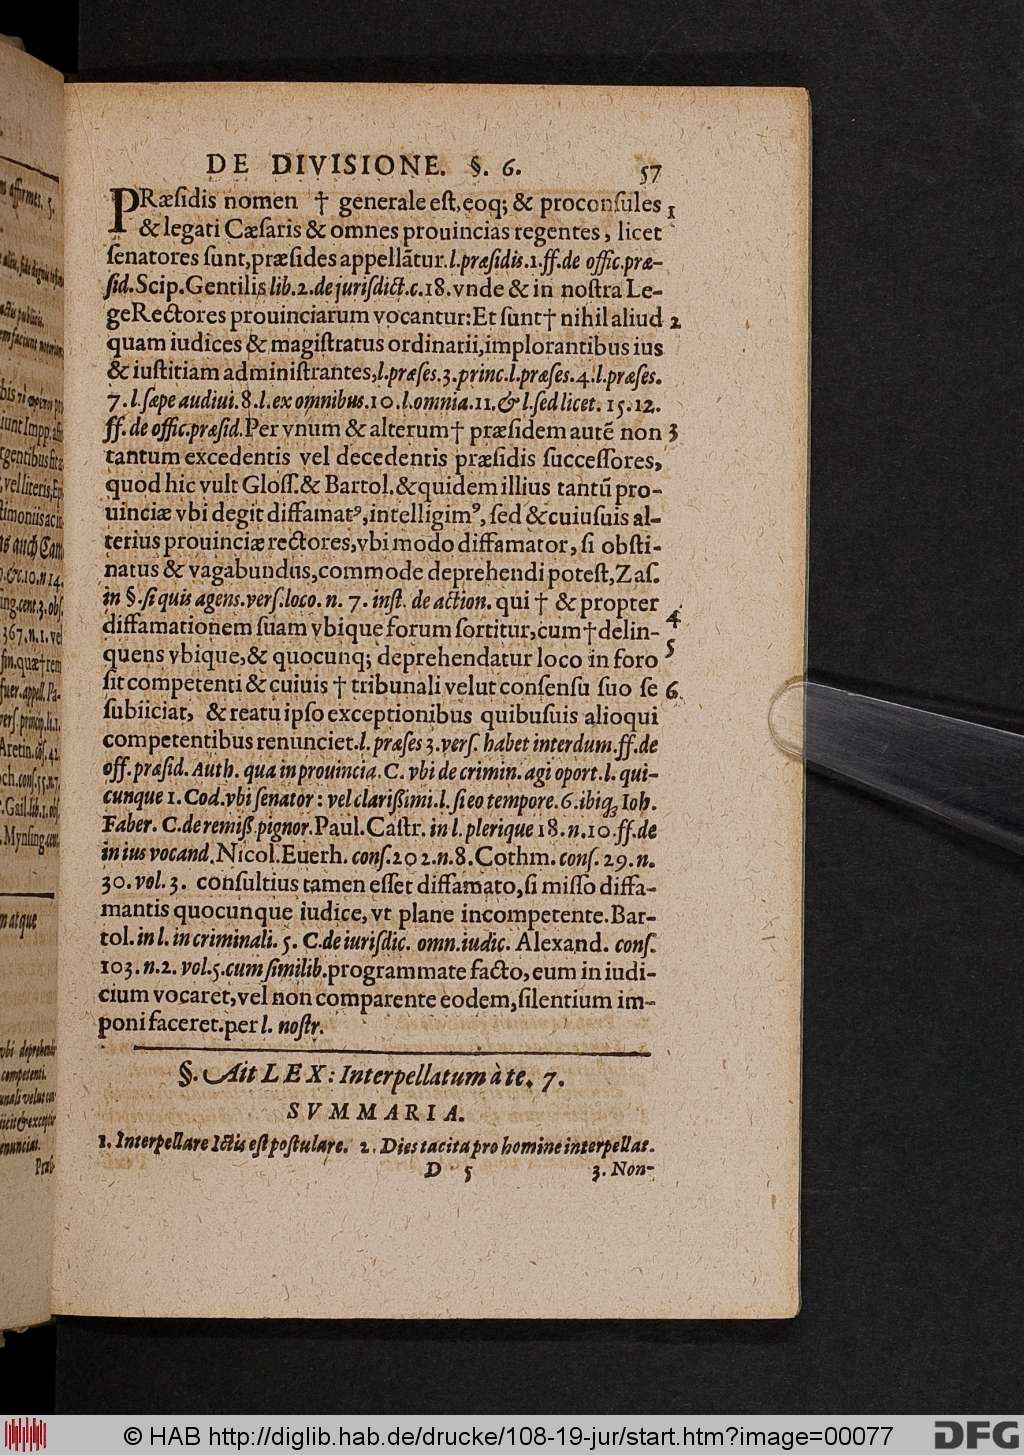 DE DIVISIONE. §. 6. 57
PRæſidis nomen † generale eſt, eoq; & proconſules 1
& legati Cæſaris & omnes prouincias regentes, licet
ſenatores ſunt, præſides appellãtur. l. præſidis. 1. ff. de offic. præ-
ſid. Scip. Gentilis lib. 2. de jurisdict. c. 18. vnde & in noſtra Le-
ge Rectores prouinciarum vocantur: Et ſunt † nihil aliud 2
quam iudices & magiſtratus ordinarii, implorantibus ius
& iuſtitiam adminiſtrantes, l. præſes. 3. princ. l. præſes. 4. l. præſes.
7. l. ſæpe audiui. 8. l. ex omnibus. 10. l. omnia. 11. & l. ſed licet. 15. 12.
ff. de offic. præſid. Per vnum & alterum † præſidem autẽ non 3
tantum excedentis vel decedentis præſidis ſucceſſores,
quod hic vult Gloſſ. & Bartol. & quidem illius tantũ pro-
uinciæ vbi degit diffamatꝰ, intelligimꝰ, ſed & cuiuſuis al-
terius prouinciæ rectores, vbi modo diffamator, ſi obſti-
natus & vagabundus, commode deprehendi poteſt, Zaſ.
in §. ſi quis agens. verſ. loco. n. 7. inſt. de action. qui † & propter 4
diffamationem ſuam vbique forum ſortitur, cum † delin-
quens vbique, & quocunq; deprehendatur loco in foro 5
ſit competenti & cuiuis † tribunali velut conſenſu ſuo ſe 6
ſubiiciat, & reatu ipſo exceptionibus quibuſuis alioqui
competentibus renunciet. l. præſes 3. verſ. habet interdum. ff. de
off. præſid. Auth. qua in prouincia. C. vbi de crimin. agi oport. l. qui-
cunque 1. Cod. vbi ſenator: vel clariſſimi. l. ſi eo tempore. 6. ibiq; Ioh.
Faber. C. de remiſſ. pignor. Paul. Caſtr. in l. plerique 18. n. 10. ff. de
in ius vocand. Nicol. Euerh. conſ. 202. n. 8. Cothm. conſ. 29. n.
30. vol. 3. conſultius tamen eſſet diffamato, ſi miſſo diffa-
mantis quocunque iudice, vt plane incompetente. Bar-
tol. in l. in criminali. 5. C. de iuriſdic. omn. iudic. Alexand. conſ.
103. n. 2. vol. 5. cum ſimilib. programmate facto, eum in iudi-
cium vocaret, vel non comparente eodem, ſilentium im-
poni faceret. per l. noſtr.
§. Ait LEX: Interpellatum à te. 7.
SVMMARIA.
1. Interpellare Ictis eſt poſtulare. 2. Dies tacita pro homine interpellat.
D 5 3. Non-
© HAB http://diglib.hab.de/drucke/108-19-jur/start.htm?image=00077
DFG